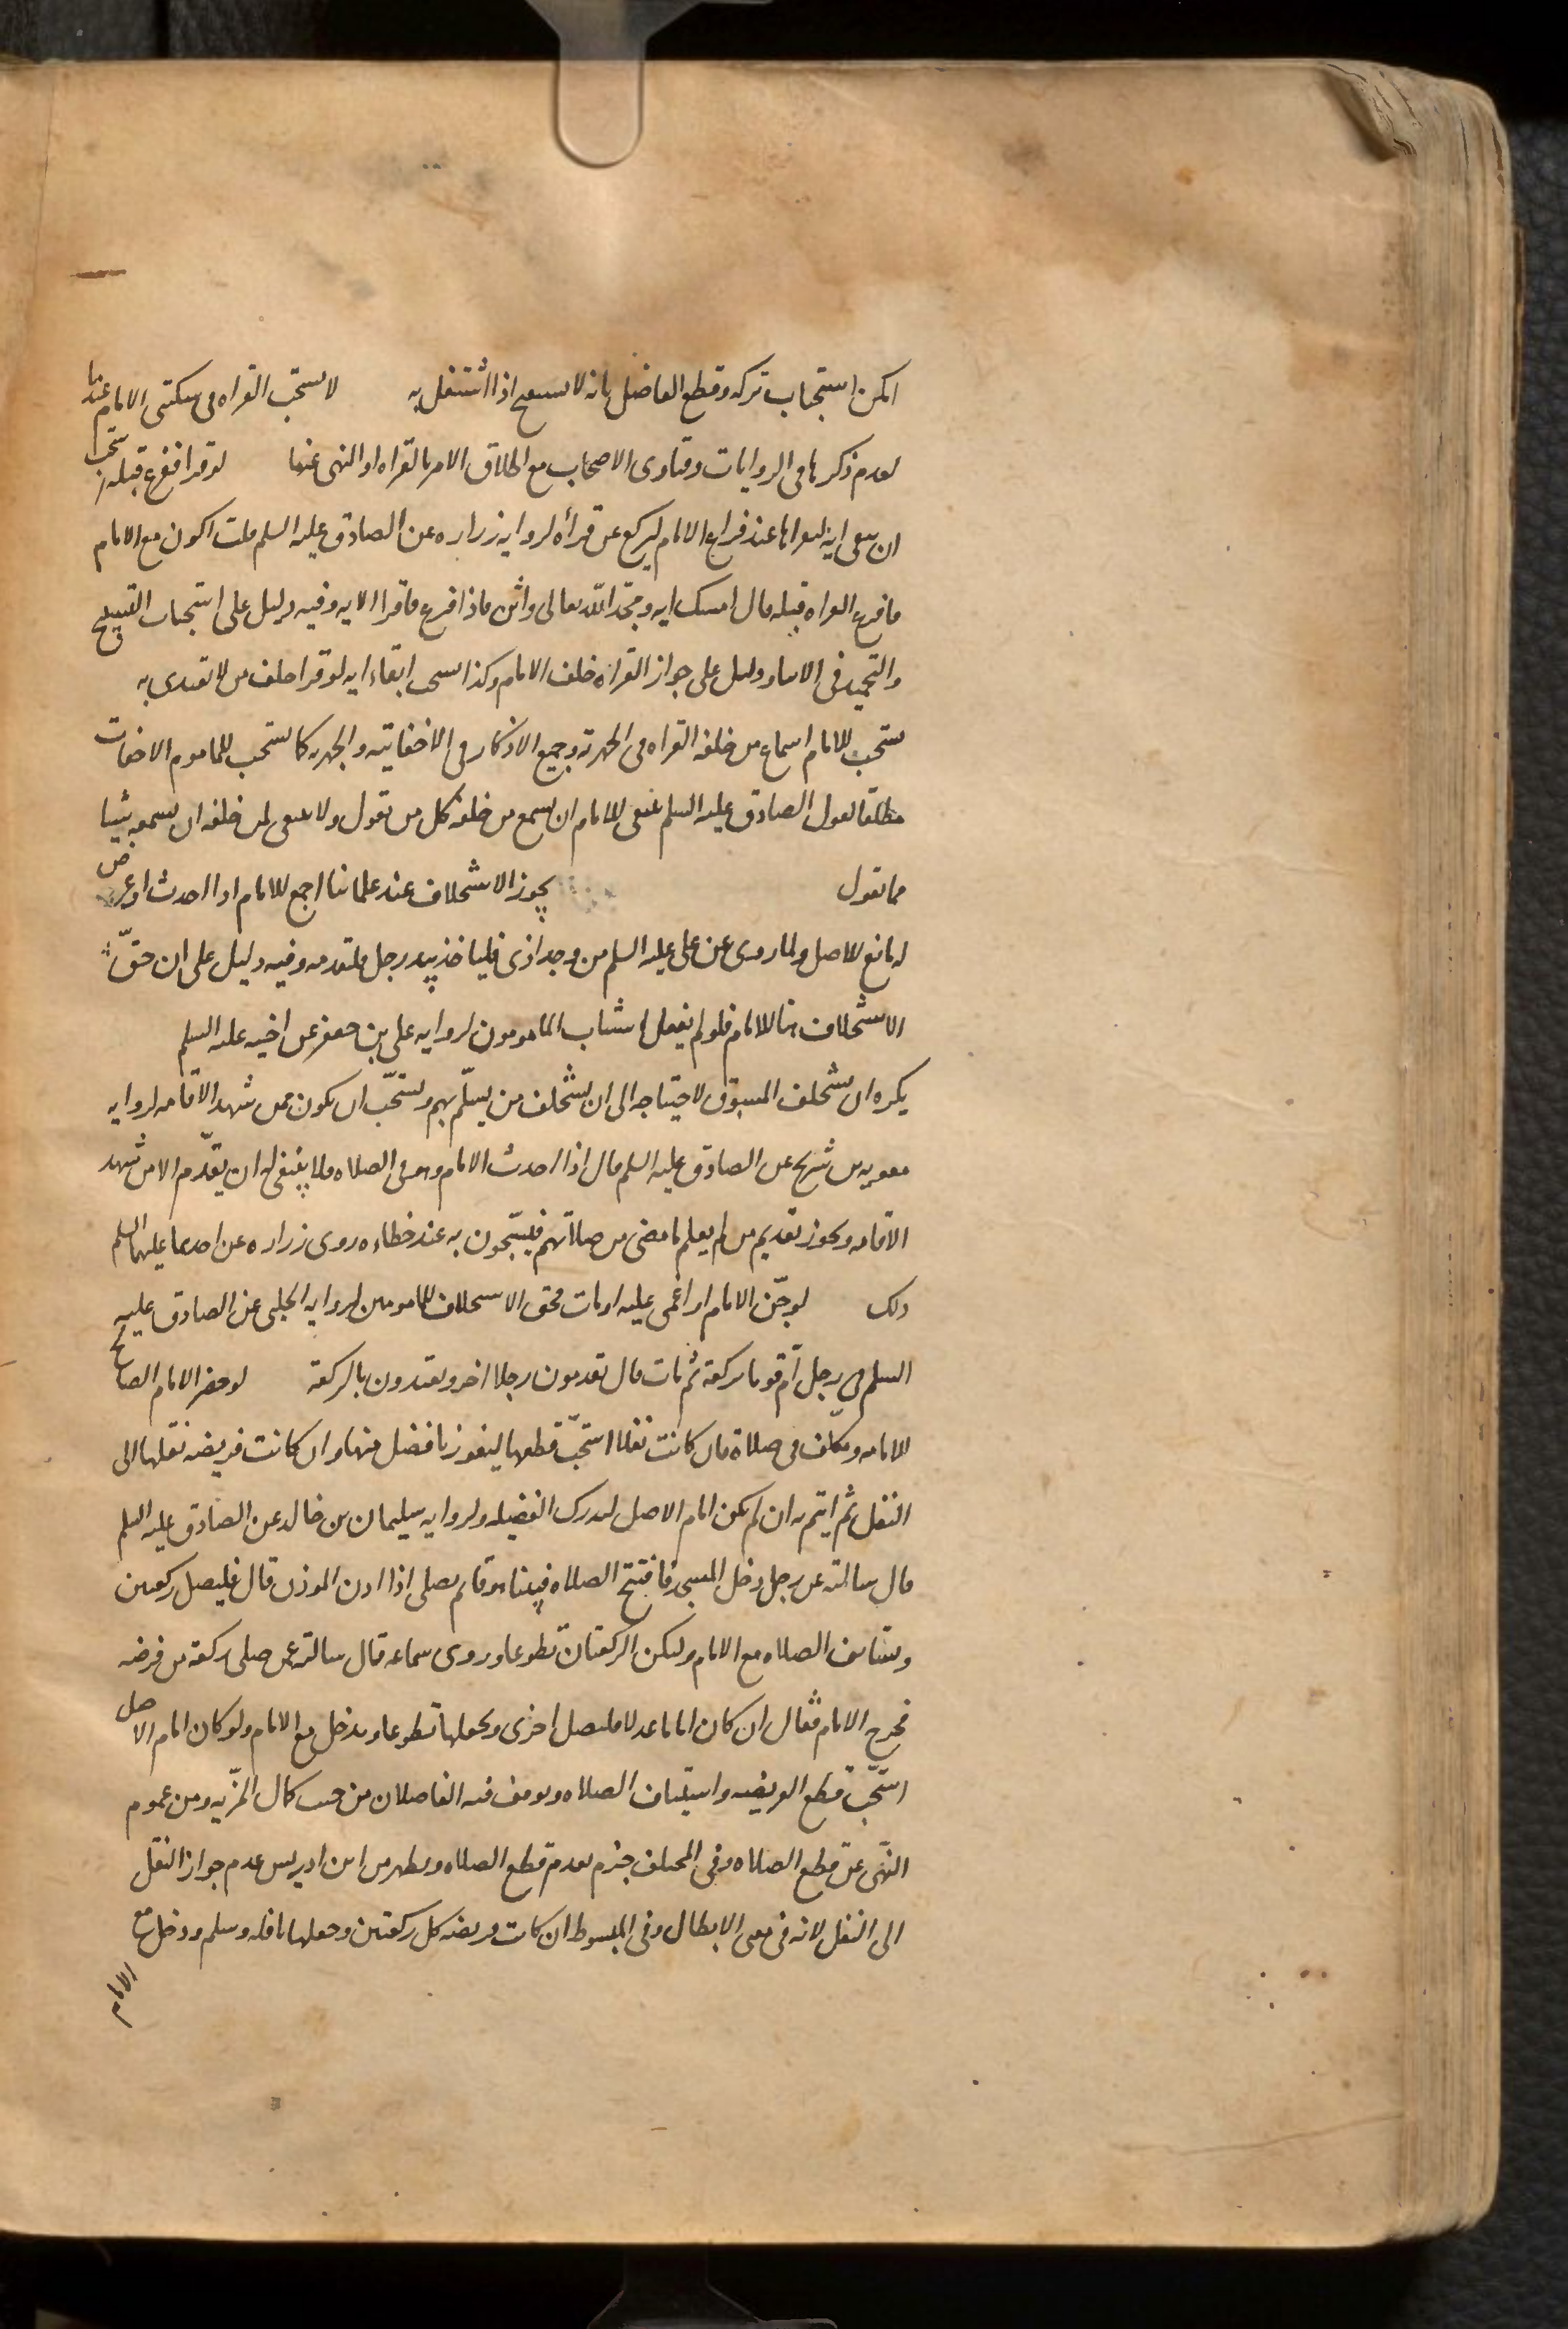 امكن استحباب تركه وقطع الفاضل بانه لا يسبح اذا اشتغل به لا يستحب القراه في سكتتي الامام عندنا
لعدم ذكرها في الروايات وفتاوى الاصحاب مع اطلاق الامر بالقراه او النهى عنها لو قرا ففرغ قبله استحب
ان يبقى ايه ليقراها عند فراغ الامام ليركع عن قراءه لروايه زراره عن الصادق عليه السلم قلت اكون مع الامام
فافرغ القراه قبله قال امسك ايه ومجد الله تعالى واثن فاذا فرغ فاقرا الايه وفيه دليل على استحباب التسبيح
والتحميد في الاثناء ودليل على جواز القراه خلف الامام وكذا يستحب ابقاء ايه لو قرا خلف من لا يقتدى به
يستحب للامام اسماع من خلفه القراه في الجهريه وجميع الاذكار في الاخفاتيه والجهريه كما يستحب للماموم الاخفات
مطلقا لقول الصادق عليه السلم ينبغى للامام ان يسمع من خلفه كل من يقول ولا ينبغى لمن خلفه ان يسمعه شيئا
مما يقول يجوز الاستخلاف عند علمائنا اجمع للامام اذا احدث او عرض
له مانع للاصل ولما روى عن على عليه السلم من وجد اذى فلياخذ بيد رجل فليقدمه وفيه دليل على ان حق
الاستخلاف هنا للامام فلو لم يفعل استناب المامومون لروايه على بن جعفر عن اخيه عليه السلم
يكره ان يستخلف المسبوق لاحتياجه الى ان يستخلف من يسلّم بهم ويستحب ان يكون ممن شهد الاقامه لروايه
معويه بن شريح عن الصادق عليه السلم قال اذا احدث الامام وهو في الصلاه فلا ينبغى له ان يقدّم الا من شهد
الاقامه ويجوز تقديم من لم يعلم ما مضى من صلاتهم فيسبحون به عند خطاءه روى زراره عن احدهما عليهما السلم
ذلك لو جن الامام او اغمى عليه او مات فحق الاستخلاف للمامومين لروايه الحلبى عن الصادق عليه
السلم في رجل ام قوما ركعة ثم مات قال يقدمون رجلا اخر ويعتدون بالركعة لو حضر الامام الصالح
للامامه ومكلف في صلاة فان كانت نفلا استحب قطعها ليفوز بافضل منها وان كانت فريضه نقلها الى
النفل ثم ايتم به ان لم يكن امام الاصل ليدرك الفضيله ولروايه سليمان بن خالد عن الصادق عليه السلم
قال سالته عن رجل دخل المسجد فافتتح الصلاه فبينا هو قائم يصلى اذا اذن الموذن قال فليصل ركعتين
ويستانف الصلاه مع الامام ولتكن الركعتان تطوعا وروى سماعه قال سالته عمن صلى ركعة من فرضه
فخرج الامام فقال ان كان اماما عدلا فليصل اخرى ويجعلها تطوعا ويدخل مع الامام ولو كان امام الاصل
استحب قطع الفريضه واستيناف الصلاه وتوقف فيه الفاضلان من حيث كمال المزيه ومن عموم
النهى عن قطع الصلاه وفى المختلف جزم بعدم قطع الصلاه ويظهر من ابن ادريس عدم جواز النقل
الى النفل لانه في معنى الابطال وفى المبسوط ان كانت فريضه كمل ركعتين وجعلها نافله وسلم ودخل مع
الامام